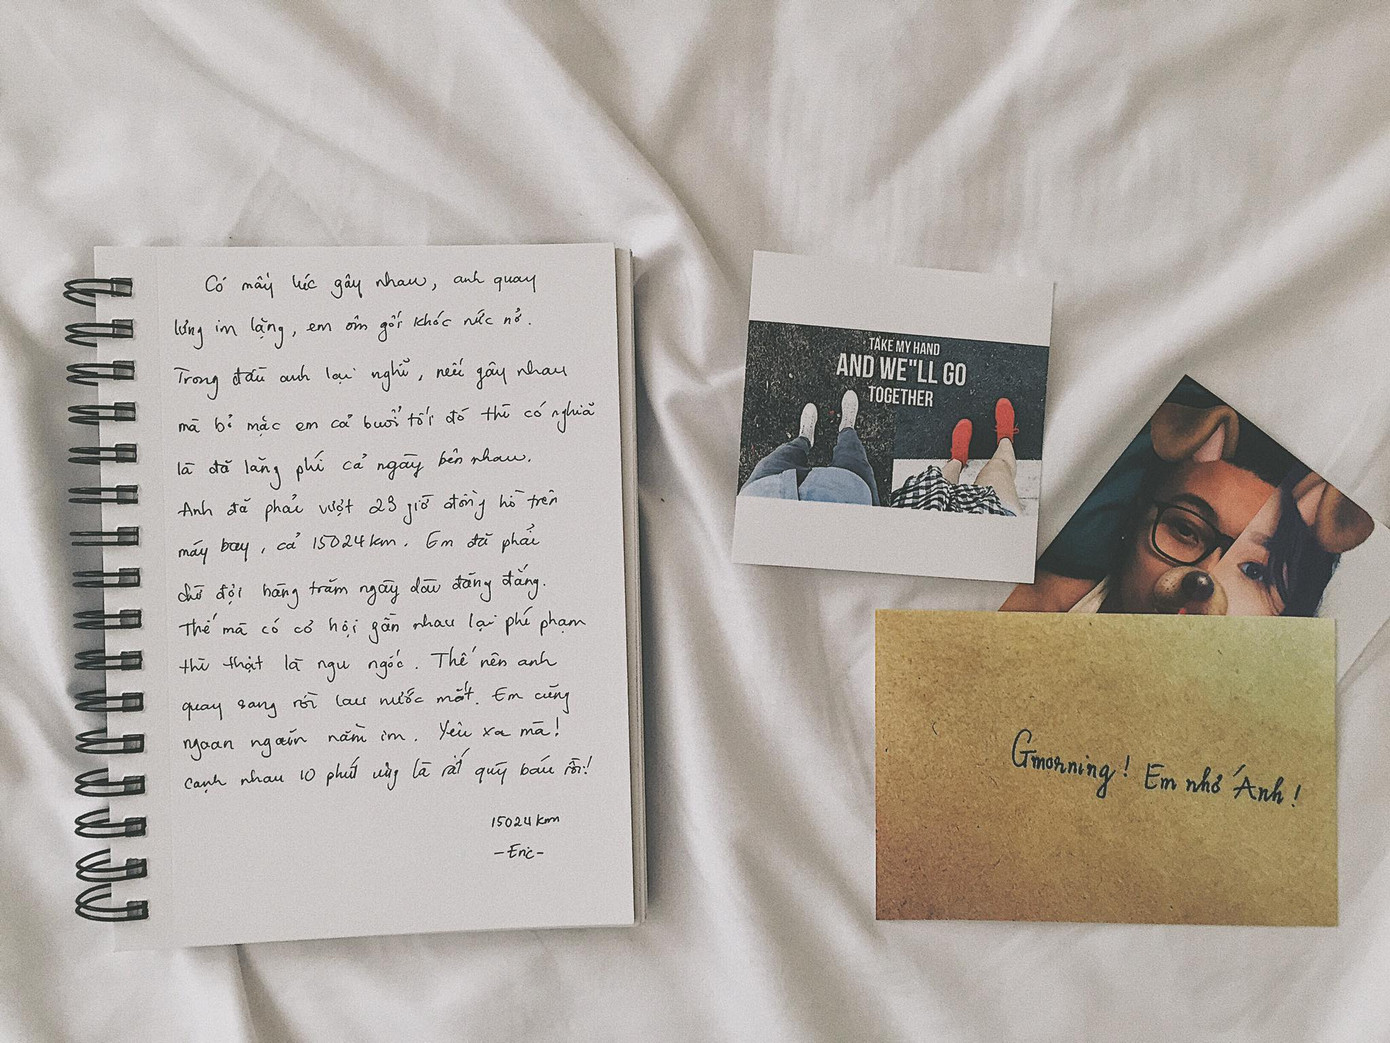 Có mấy lúc gây nhau, anh quay
lưng im lặng, em ôm gối khóc nức nở.
Trong đầu anh lại nghĩ, nếu gây nhau
mà bỏ mặc em cả buổi tối đó thì có nghĩa
là đã lãng phí cả ngày bên nhau.
Anh đã phải vượt 23 giờ đồng hồ trên
máy bay, cả 15024km. Em đã phải
chờ đợi hàng trăm ngày dài đằng đẵng.
Thế mà có cơ hội gần nhau lại phí phạm
thì thật là ngu ngốc. Thế nên anh
quay sang rồi lau nước mắt. Em cũng
ngoan ngoãn nằm im. Yêu xa mà!
cạnh nhau 10 phút cũng là rất quý báu rồi!
15024km
-Eric-
TAKE MY HAND
AND WE"LL GO
TOGETHER
Gmorning! Em nhớ Anh!